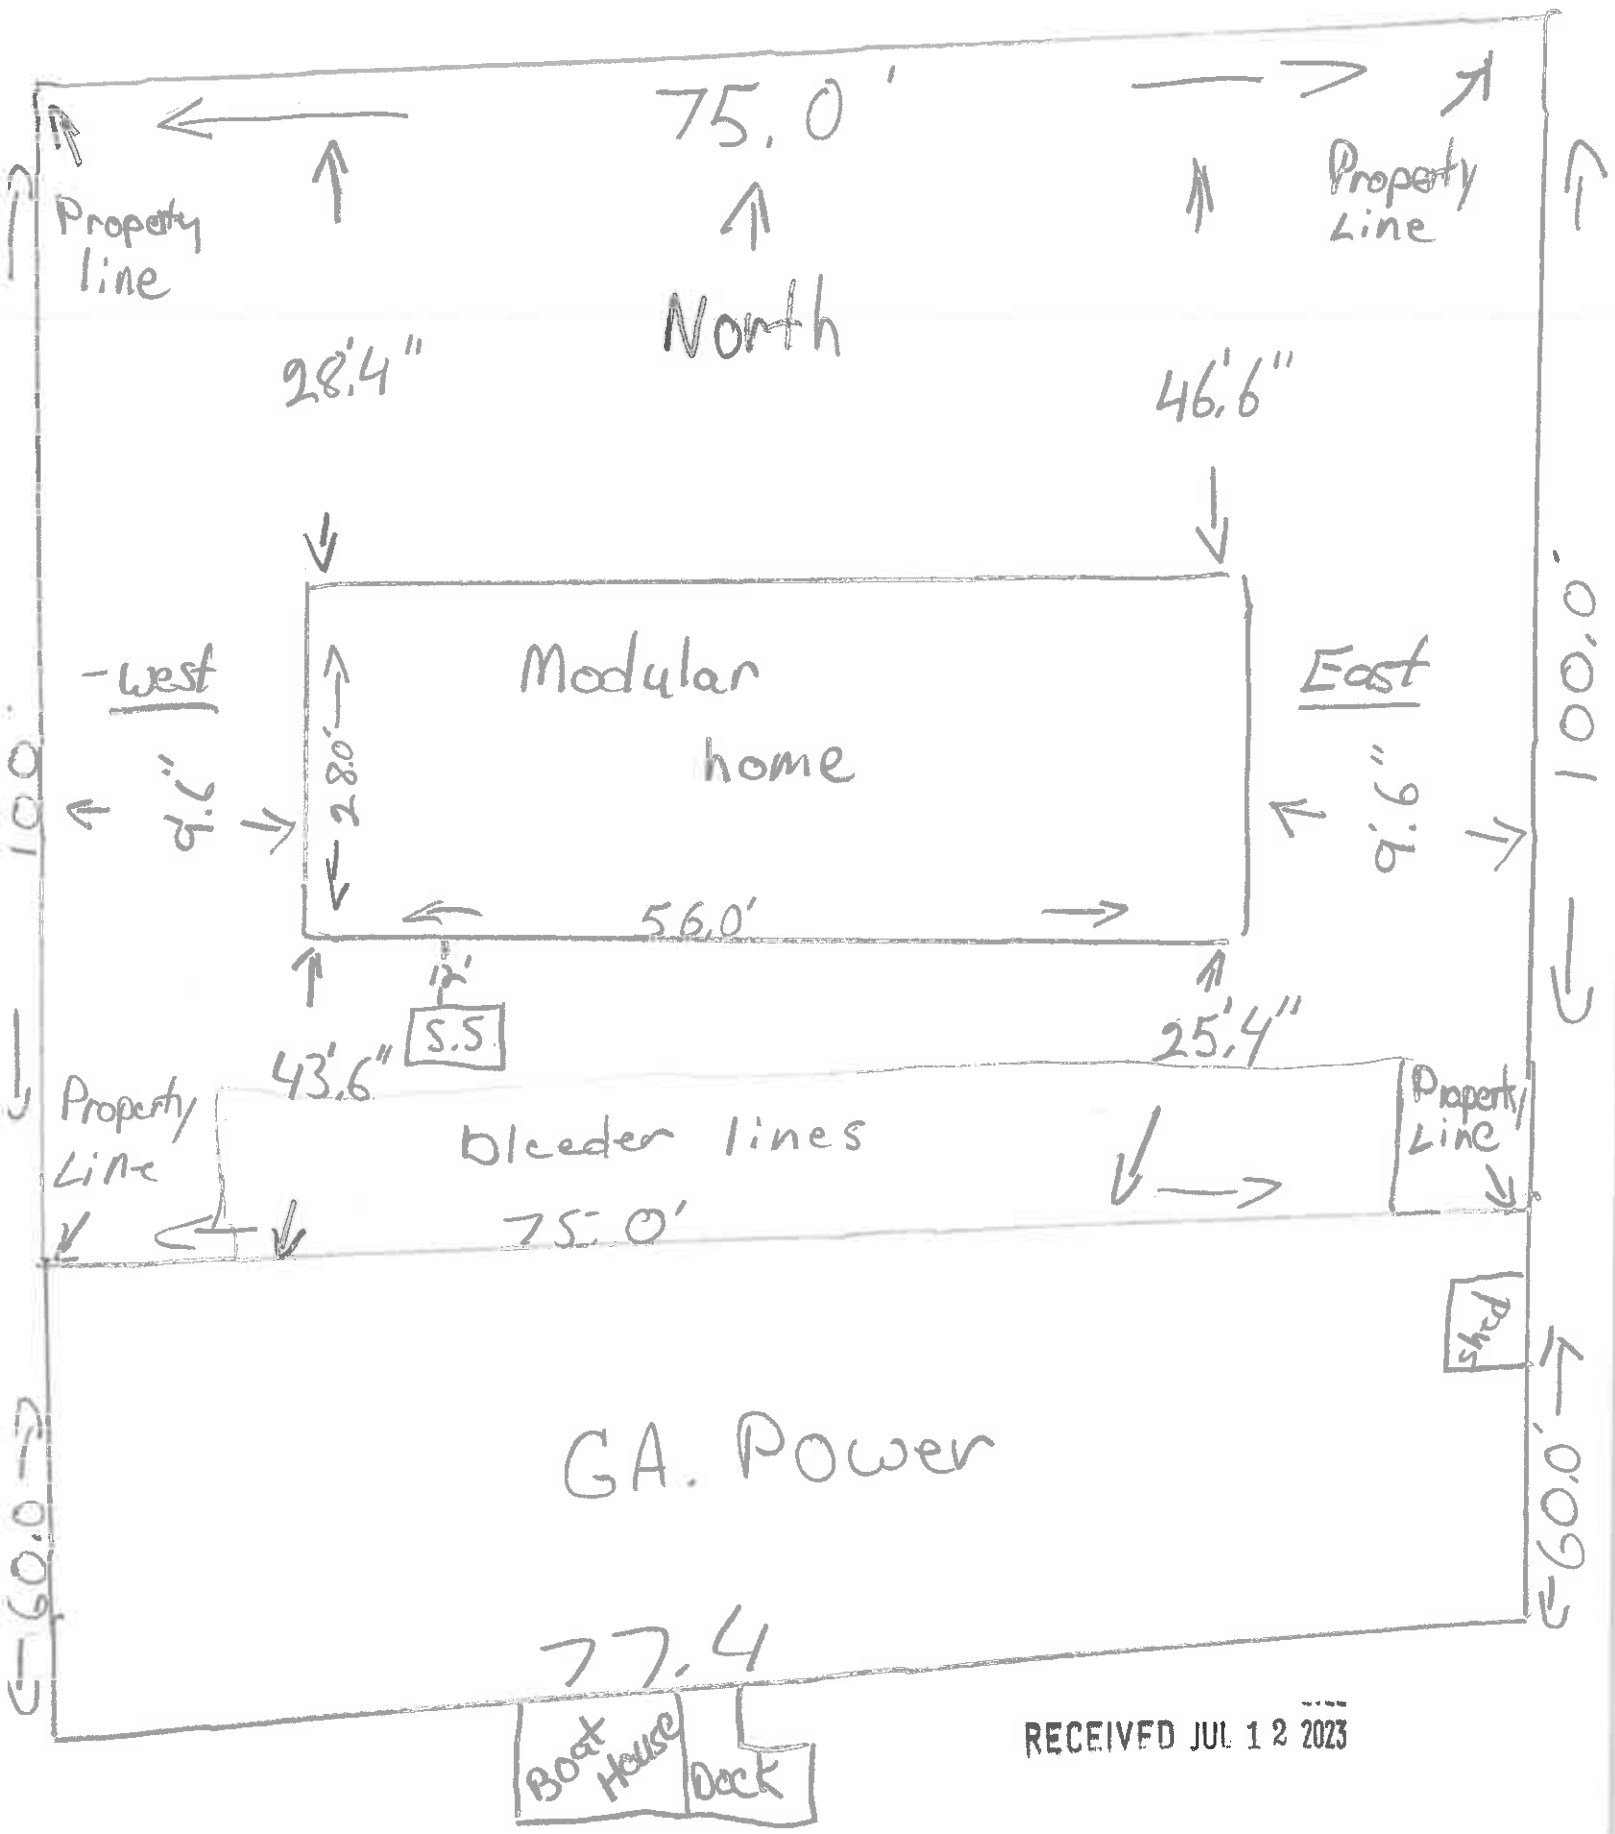 75.0'
Property
line
Property
Line
North
28'.4"
46'.6"
-west
9'.6"
100'
Modular
home
28.0'
56.0'
East
9'.6"
100.0'
12'
S.S
43'.6"
25'.4"
Property
Line
Bleeder lines
Property
Line
75.0'
Shed
GA. Power
60.0
60.0'
77.4
Boat
House
Dock
RECEIVED JUL 12 2023